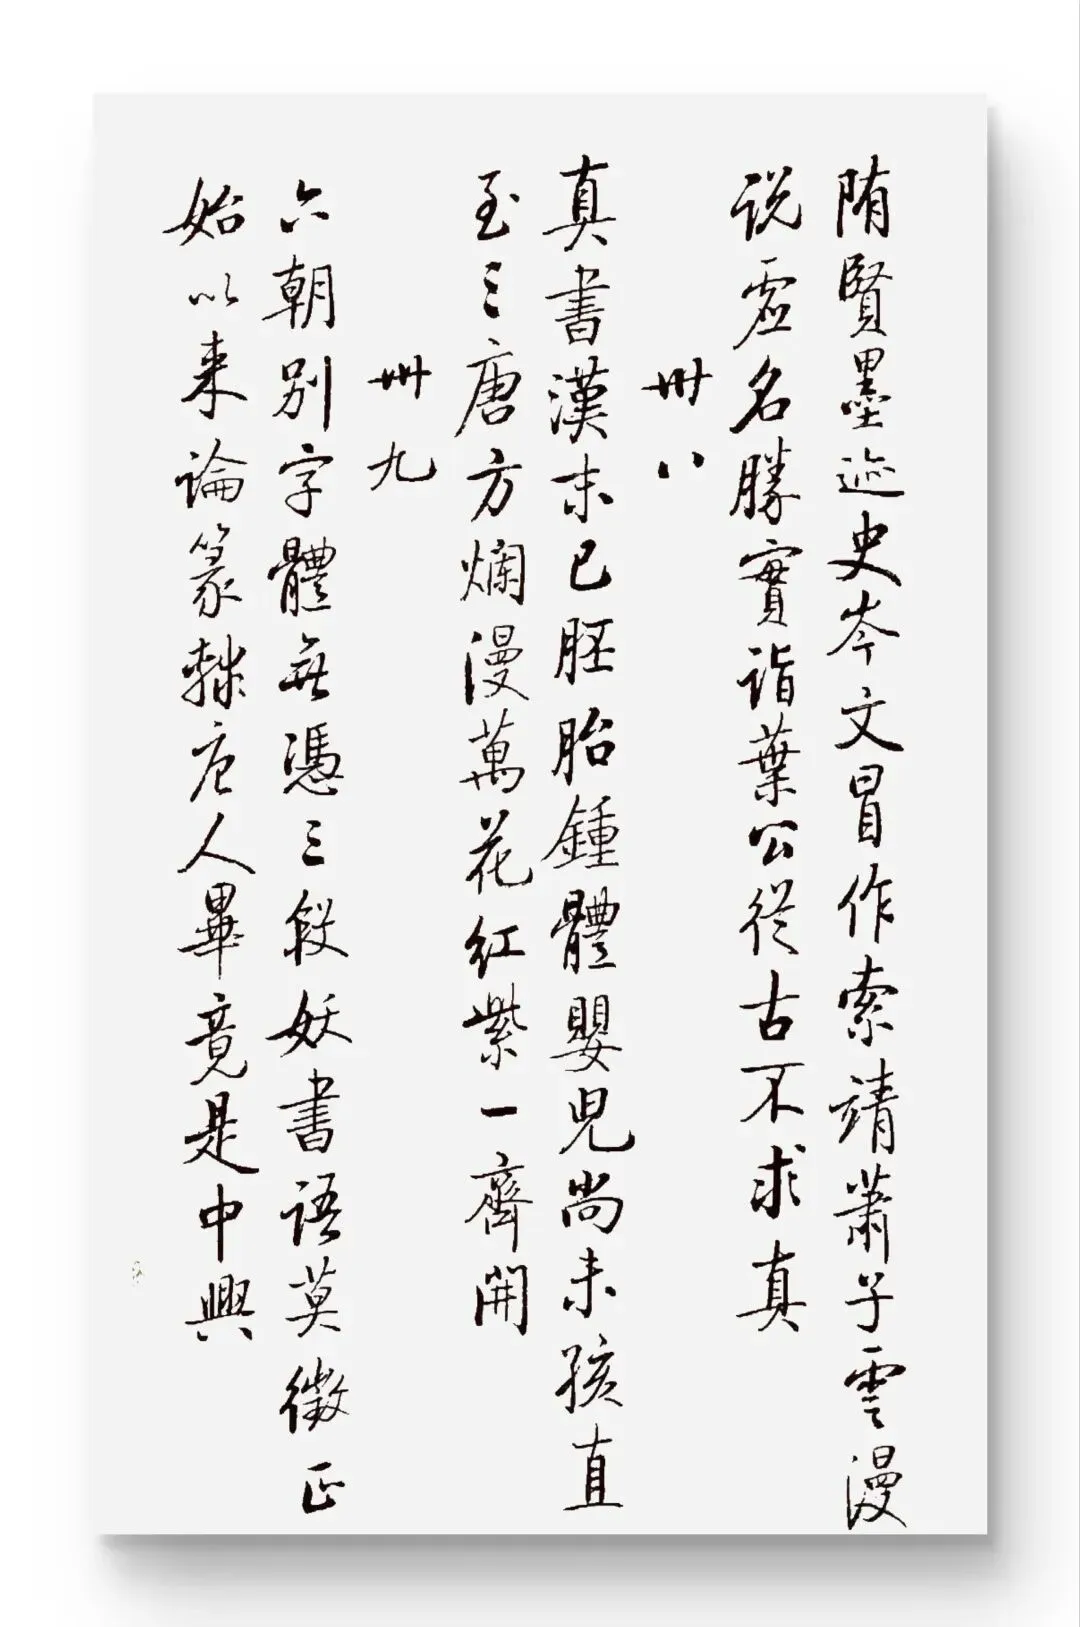 隋賢墨迹史岑文冒作索靖蕭子雲漫
説虛名勝實詣葉公從古不求真
卌八
真書漢末已胚胎鍾體嬰兒尚未孩直
至三唐方爛漫萬花紅紫一齊開
卌九
六朝別字體無憑三段妖書語莫徵正
始以来論篆隸唐人畢竟是中興